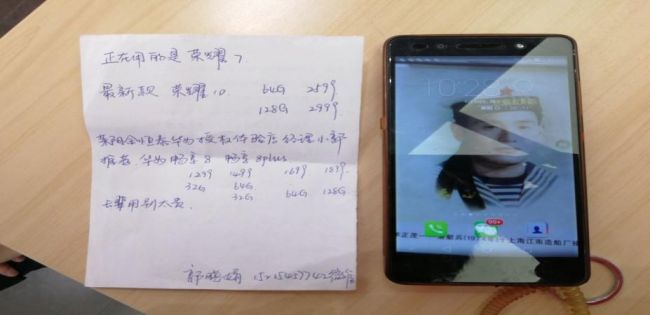 正在用的是 荣耀7
最新款 荣耀10 64G 2599
128G 2999
莱阳金恒泰华为授权体验店经理小郭
推荐 华为畅享8 畅享8plus
1299 1499 1699 1899
32G 64G
64G 128G
长辈用别太贵.
郭晓娟
10:28
99+
(1974年)上海江南造船厂